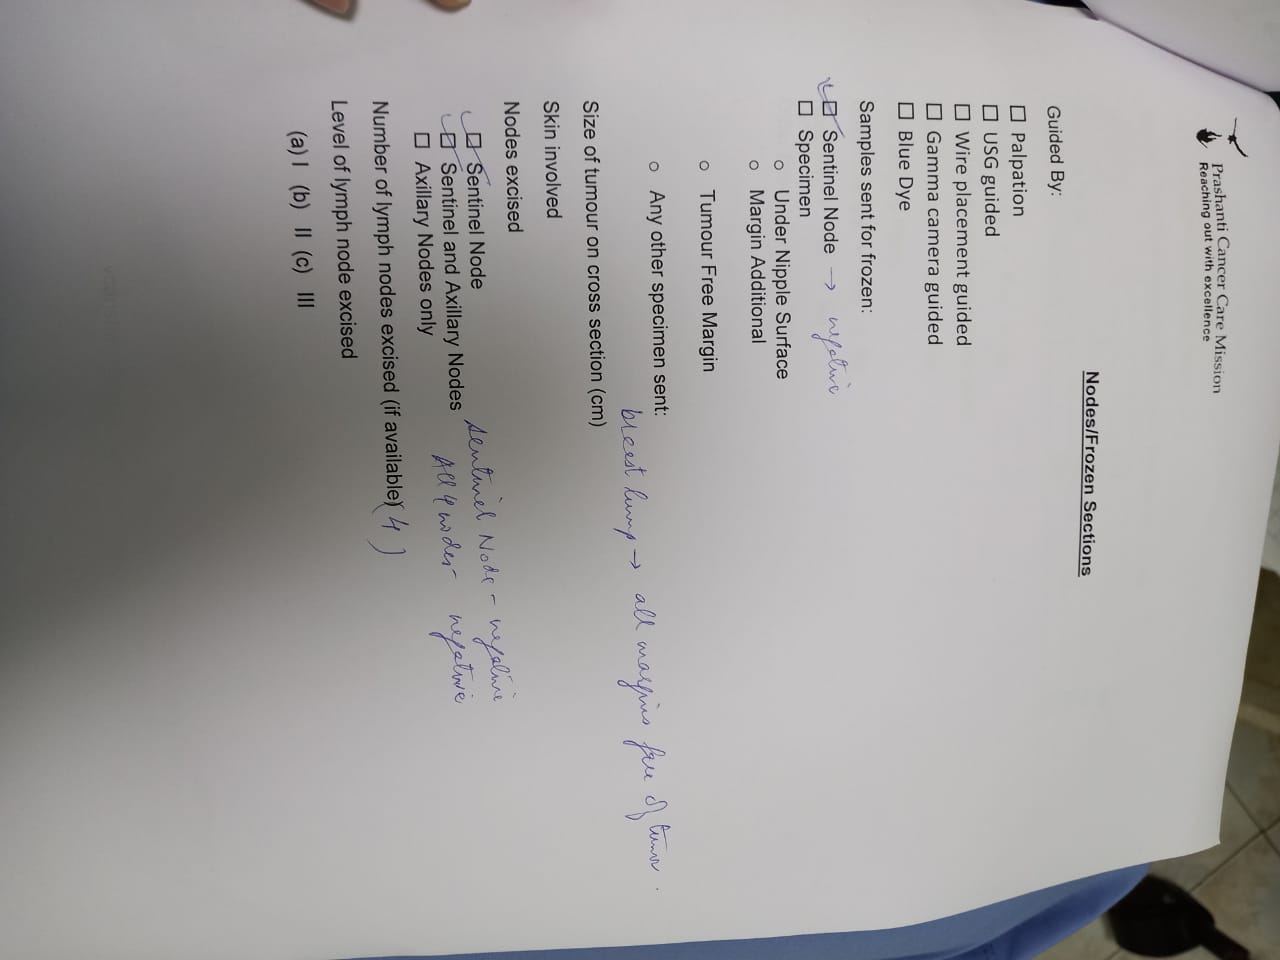 Prashanti Cancer Care Mission
Reaching out with excellence
Nodes/Frozen Sections
Guided By:
☐ Palpation
☐ USG guided
☐ Wire placement guided
☐ Gamma camera guided
☐ Blue Dye
Samples sent for frozen:
☑ Sentinel Node → negative
☐ Specimen
○ Under Nipple Surface
○ Margin Additional
○ Tumour Free Margin
○ Any other specimen sent:
breast lump → all margins free of tumor.
Size of tumour on cross section (cm)
Skin involved
Nodes excised
☑ Sentinel Node Sentinel Node - negative
☑ Sentinel and Axillary Nodes All 4 nodes - negative
☐ Axillary Nodes only
Number of lymph nodes excised (if available) (4)
Level of lymph node excised
(a) I (b) II (c) III